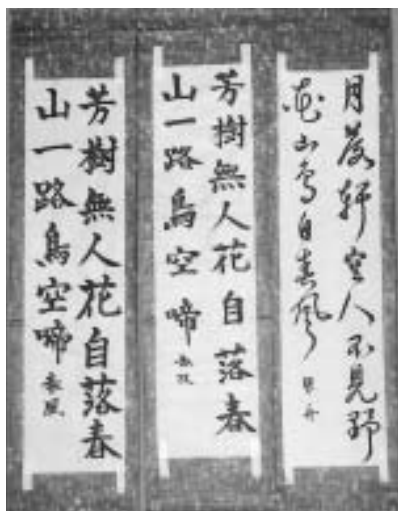 月落軒空人不見野
花山鳥自春風
芳樹無人花自落春
山一路鳥空啼
芳樹無人花自落春
山一路鳥空啼